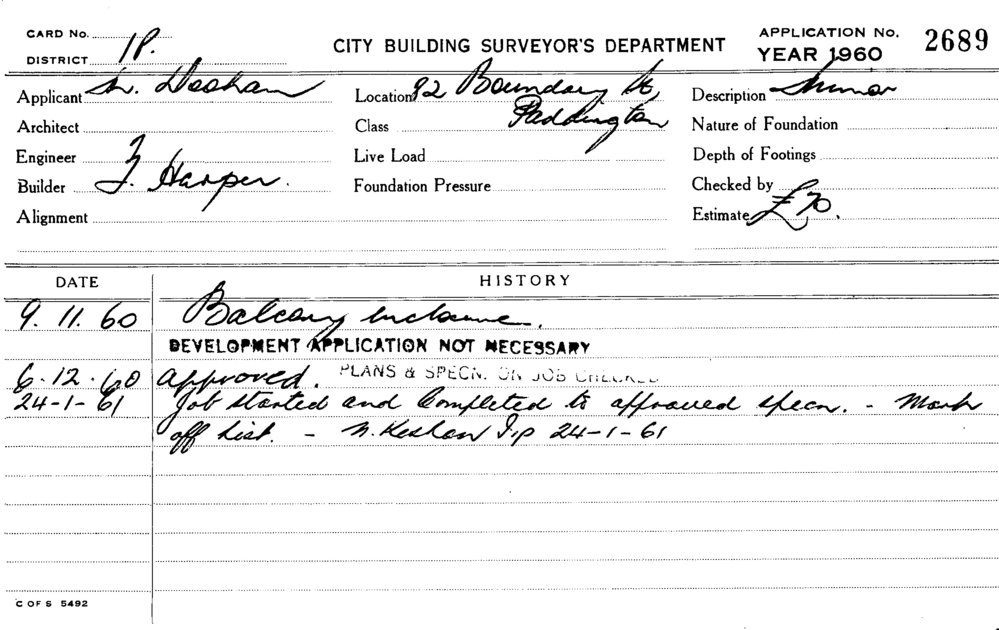 CARD No. 1P.
DISTRICT
CITY BUILDING SURVEYOR'S DEPARTMENT
APPLICATION No. 2689
YEAR 1960
Applicant
Location 92 Boundary St,
Paddington
Description Minor
Architect
Class
Nature of Foundation
Engineer
Live Load
Depth of Footings
Builder J. Harper.
Foundation Pressure
Checked by
Alignment
Estimate £70.
DATE HISTORY
9. 11. 60 Balcony enclosure.
DEVELOPMENT APPLICATION NOT NECESSARY
6. 12. 60 approved. PLANS & SPECN. ON JOB CHECKED
24-1-61 Job started and Completed to approved specn. - Mark
off List. - Insp 24-1-61
C OF S 5492